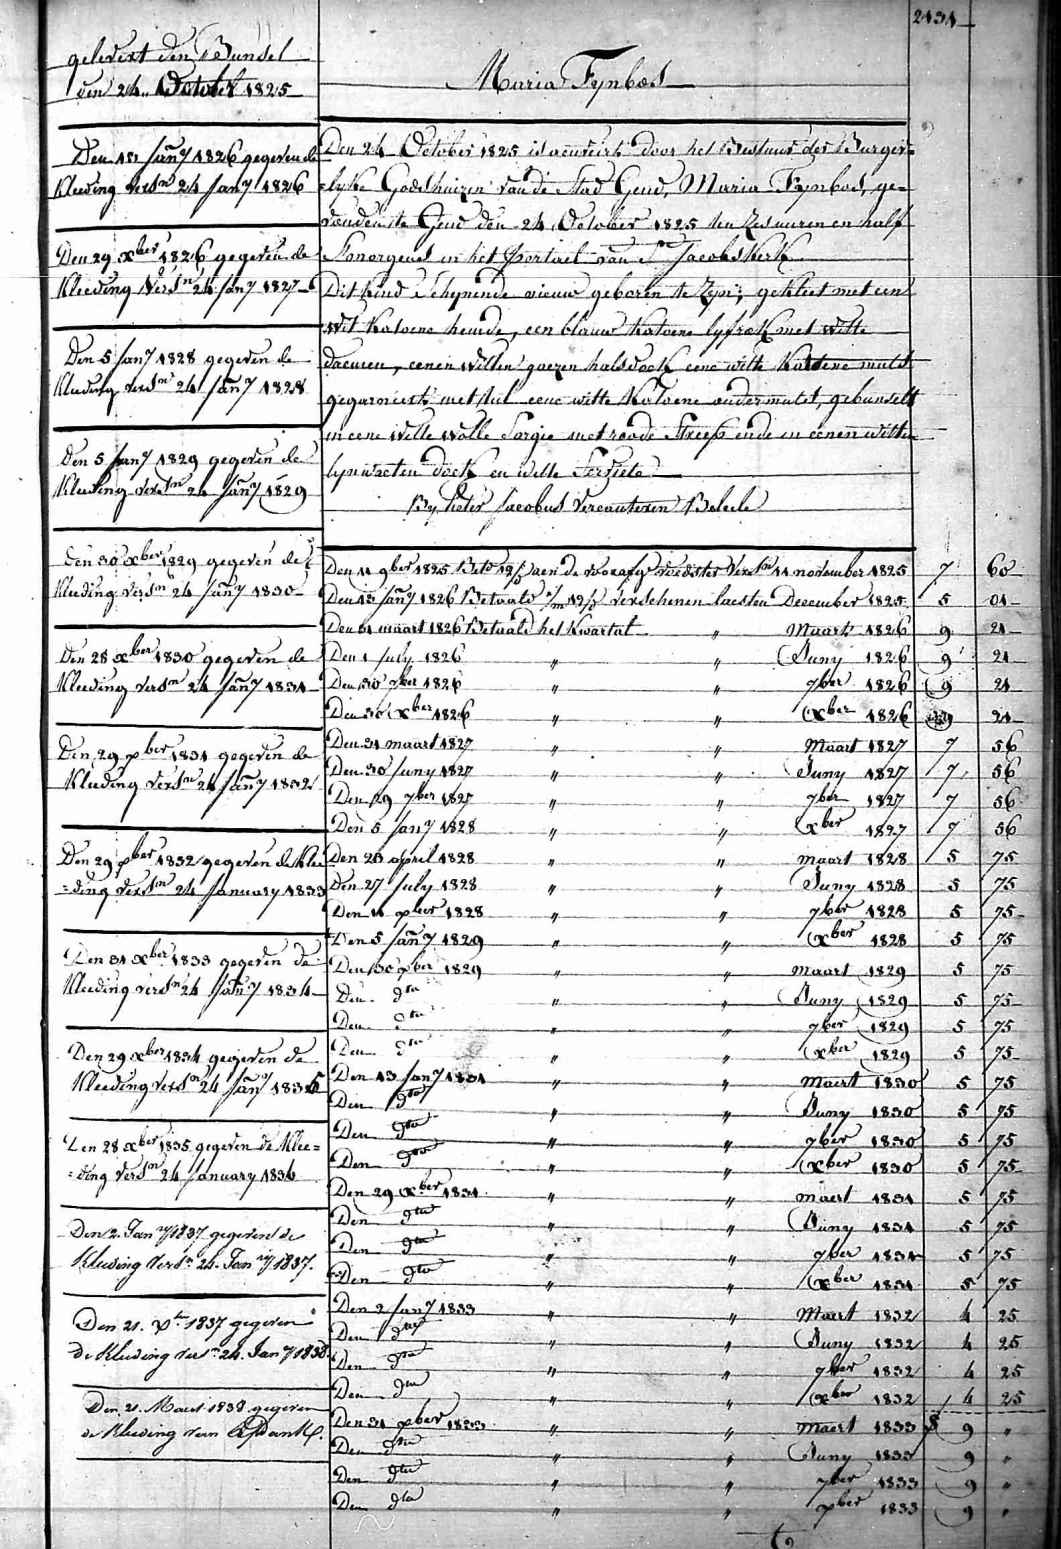 2131
gelevert den Bundel
den 24 October 1825
Maria Fynbos
Den 24 October 1825 is door het Bestuur der Burger=
=lyke Godshuizen van de Stad Gend, Maria Fynbos, ge=
=vonden te Gend den 24 October 1825 ten zes uuren en half
s'morgens in het Portael van St Jacobs Kerk
Dit kind schynende nieuw geboren te zyn, gekleet met een
wit katoene hemde, een blauw katoene lyfrok met witte
eenen witten gaezen halsdoek eene witte Kattoene muts
gegarneert met tul eene witte katoene ondermuts, gebunselt
in eene witte wolle Sargie met roode streep ende in eenen witten
lynwaeten doek en witte Serviete
By Pieter Jacobus Vercauteren
Den 13 Jany 1826 gegeven de
Kleeding versn 24 Jany 1826
Den 29 xber 1826 gegeven de
Kleeding versn 24 Jany 1827
Den 5 Jany 1828 gegeven de
Kleeding versn 24 Jany 1828
Den 5 Jany 1829 gegeven de
Kleeding versn 24 Jany 1829
Den 30 xber 1829 gegeven de
Kleeding versn 24 Jany 1830
Den 28 xber 1830 gegeven de
Kleeding versn 24 Jany 1831
Den 29 xber 1831 gegeven de
Kleeding versn 24 Jany 1832
Den 29 xber 1832 gegeven de Klee
=ding versn 24 January 1833
Den 31 xber 1833 gegeven de
Kleeding versn 24 Jany 1834
Den 29 xber 1834 gegeven de
Kleeding versn 24 Jany 1835
Den 28 xber 1835 gegeven de Klee=
=ding versn 24 January 1836
Den 2. Jany 1837 gegeven de
Kleeding versn 24. Jany 1837.
Den 21. xber 1837 gegeven
de Kleeding versn 24. Jany 1838.
Den 21. Maert 1838 gegeven
de Kleeding van
Den 11 9ber 1825 aen de voedster versn 11 november 1825 7 60
Den 13 Jany 1826 Betaald verschenen laesten December 1825 5 01
Den 31 maart 1826 Betaald het Kwartal " Maart 1826 9 21
Den 1 July 1826 " " Juny 1826 9 21
Den 30 7ber 1826 " " 7ber 1826 9 21
Den 30 xber 1826 " " xber 1826 9 21
Den 31 maart 1827 " " Maart 1827 7 56
Den 30 Juny 1827 " " Juny 1827 7 56
Den 29 7ber 1827 " " 7ber 1827 7 56
Den 5 Jany 1828 " " xber 1827 7 56
Den 26 april 1828 " " maart 1828 5 75
Den 27 July 1828 " " Juny 1828 5 75
Den 11 xber 1828 " " 7ber 1828 5 75
Den 5 Jany 1829 " " xber 1828 5 75
Den 30 xber 1829 " " maart 1829 5 75
Den dto " " Juny 1829 5 75
Den dto " " 7ber 1829 5 75
Den dto " " xber 1829 5 75
Den 13 Jany 1831 " " Maert 1830 5 75
Den dto " " Juny 1830 5 75
Den dto " " 7ber 1830 5 75
Den dto " " xber 1830 5 75
Den 29 xber 1831 " " maert 1831 5 75
Den dto " " Juny 1831 5 75
Den dto " " 7ber 1831 5 75
Den dto " " xber 1831 5 75
Den 2 Jany 1833 " " Maert 1832 4 25
Den dto " " Juny 1832 4 25
Den dto " " 7ber 1832 4 25
Den dto " " xber 1832 4 25
Den 31 xber 1833 " " maert 1833 9 "
Den dto " " Juny 1833 9 "
Den dto " " 7ber 1833 9 "
Den dto " " xber 1833 9 "